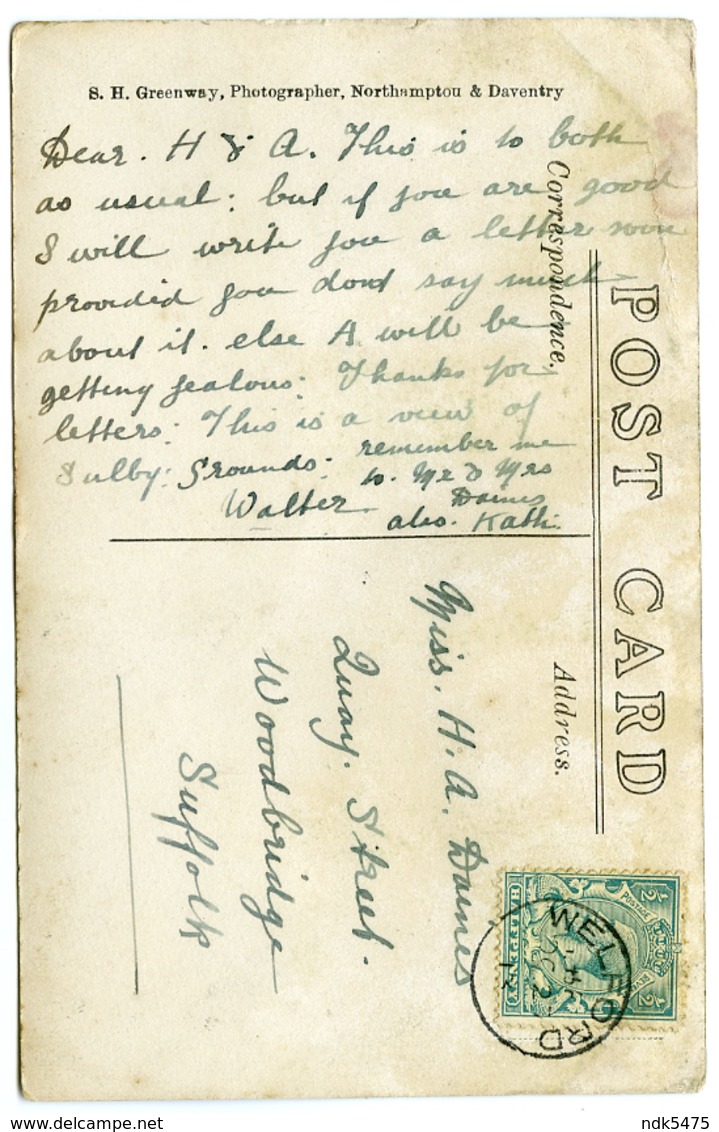 S. H. Greenway, Photographer, Northampton & Daventry
Dear. H & A. This is to both
as usual: but if you are good
I will write you a letter soon
provided you dont say much
about it. else A will be
getting jealous: Thanks for
letters: This is a view of
Sulby: Grounds: remember me
to. Mr & Mrs
Walter Daines
also. Kath.
Correspondence.
POST CARD
Address.
Miss. H. A. Daines
Quay. Street.
Woodbridge
Suffolk
POSTAGE
HALFPENNY
WELFORD
OC 2
12
ndk5475